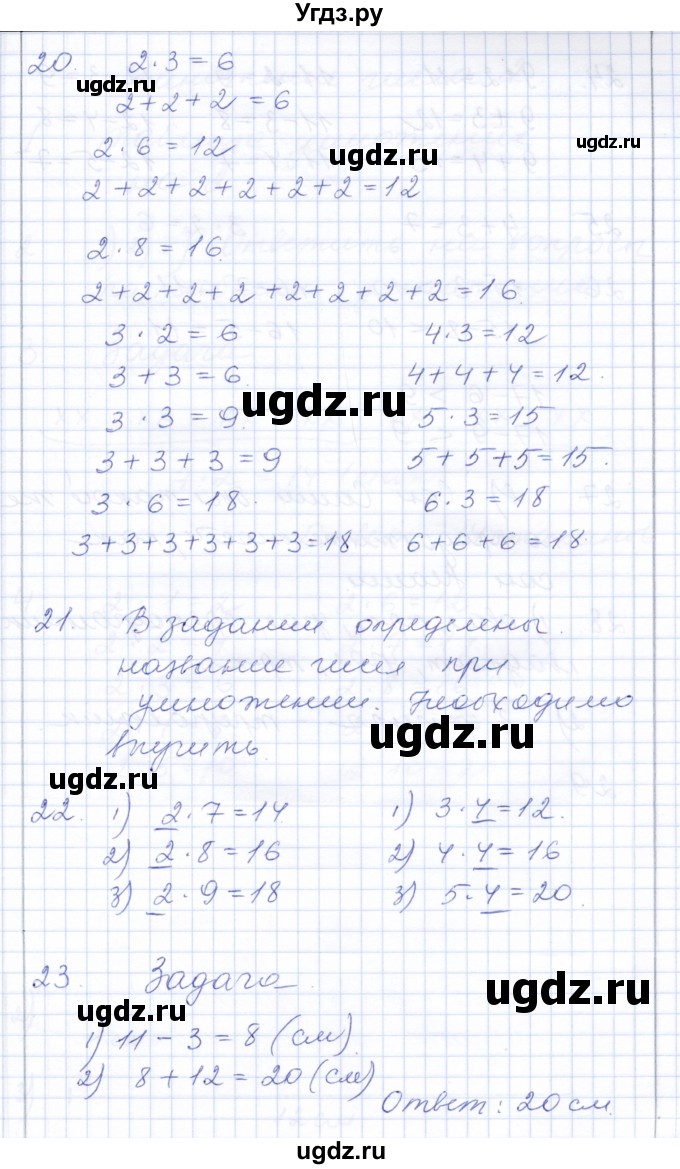 Угдз.ру
20. 2·3=6
2+2+2=6
ugdz.ru
ugdz.ru
2·6=12
2+2+2+2+2+2=12
2·8=16.
ugdz.ru
2+2+2+2+2+2+2+2=16.
3·2=6 4·3=12
3+3=6. 4+4+4=12.
ugdz.ru
3·3=9. 5·3=15
3+3+3=9 5+5+5=15.
3·6=18. 6·3=18
3+3+3+3+3+3=18 6+6+6=18.
21. В задании определены
название чисел при
умножении. Необходимо
ugdz.ru
выучить.
ugdz.ru
22. 1) 2·7=14 1) 3·4=12.
2) 2·8=16 2) 4·4=16
3) 2·9=18 3) 5·4=20.
23. Задача
ugdz.ru
ugdz.ru
1) 11-3=8 (см)
2) 8+12=20 (см)
Ответ: 20 см.
ugdz.ru